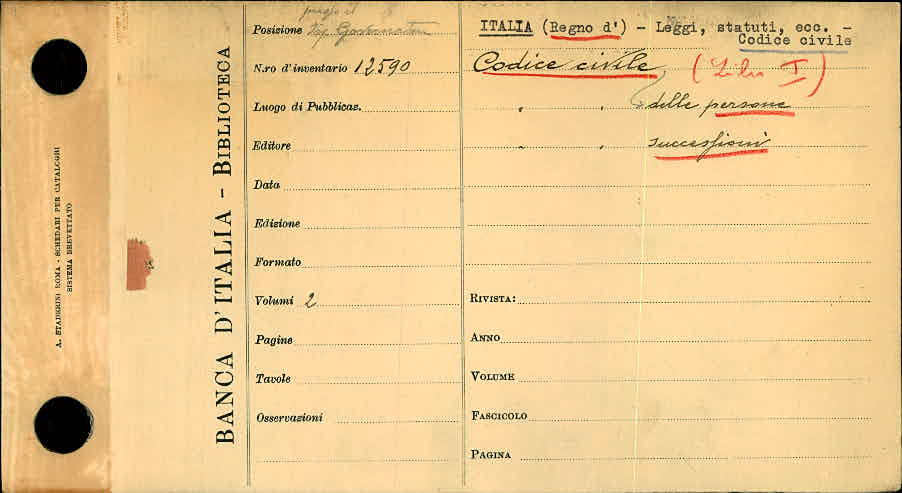 A. STADERINI ROMA - SCHEDARI PER CATALOGHI
SISTEMA BREVETTATO
BANCA D'ITALIA - BIBLIOTECA
presso il
Posizione Vice Governatore
N.ro d'inventario 12590
Luogo di Pubblicaz.
Editore
Data
Edizione
Formato
Volumi 2
Pagine
Tavole
Osservazioni
ITALIA (Regno d') - Leggi, statuti, ecc. -
Codice civile
Codice civile (Libro I)
" " delle persone
" " successioni
RIVISTA:
ANNO
VOLUME
FASCICOLO
PAGINA